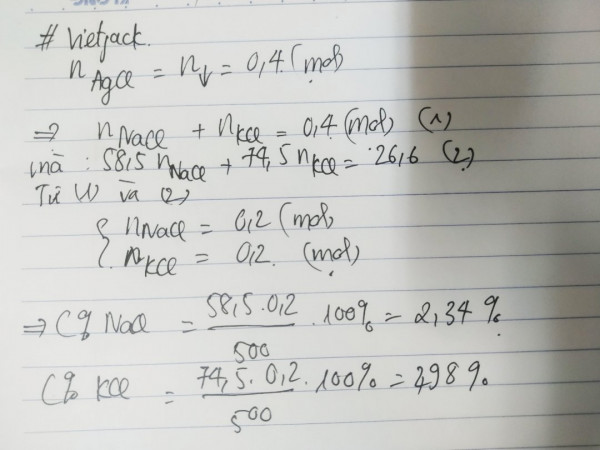 # Vietjack.
n AgCl = n↓ = 0,4 (mol)
⇒ n NaCl + n KCl = 0,4 (mol) (1)
mà : 58,5 n NaCl + 74,5 n KCl = 26,6 (2)
Từ (1) và (2)
{ n NaCl = 0,2 (mol)
n KCl = 0,2 (mol)
⇒ C% NaCl = 58,5 . 0,2 / 500 . 100% = 2,34 %
C% KCl = 74,5 . 0,2 / 500 . 100% = 2,98 %